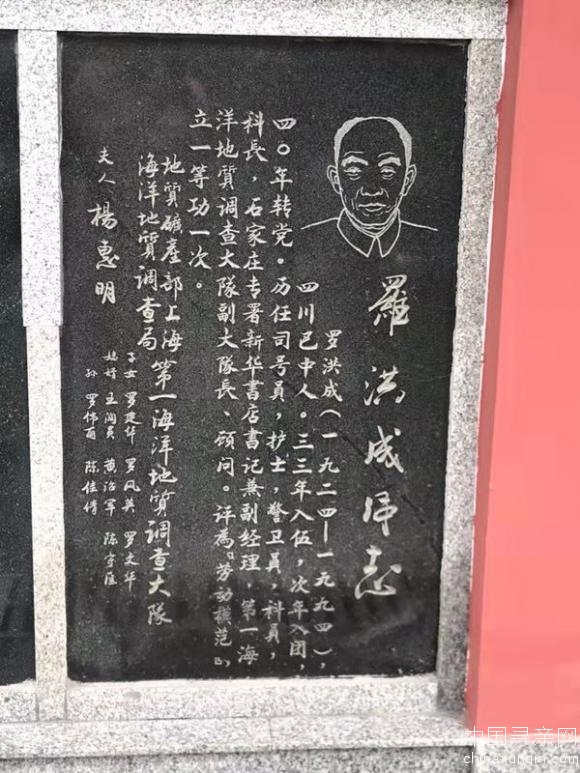 羅洪成同志
罗洪成(一九二四—一九九四),
四川巴中人。三三年入伍,次年入团,
四〇年转党。历任司号员,护士,警卫员,科员,
科長,石家庄专署新华書店書记兼副经理,第一海
洋地質调查大隊副大隊長、顾问。评為"劳动模范",
立一等功一次。
地質礦產部上海
海洋地質調查局
第一海洋地質調查大隊
夫人 楊惠明
子女 罗建华 罗风英 罗文华
媳婿 王润员 黄治军 陈守
孙 罗伟 陈佳倩
中国寻亲网
chinaxunqin.com